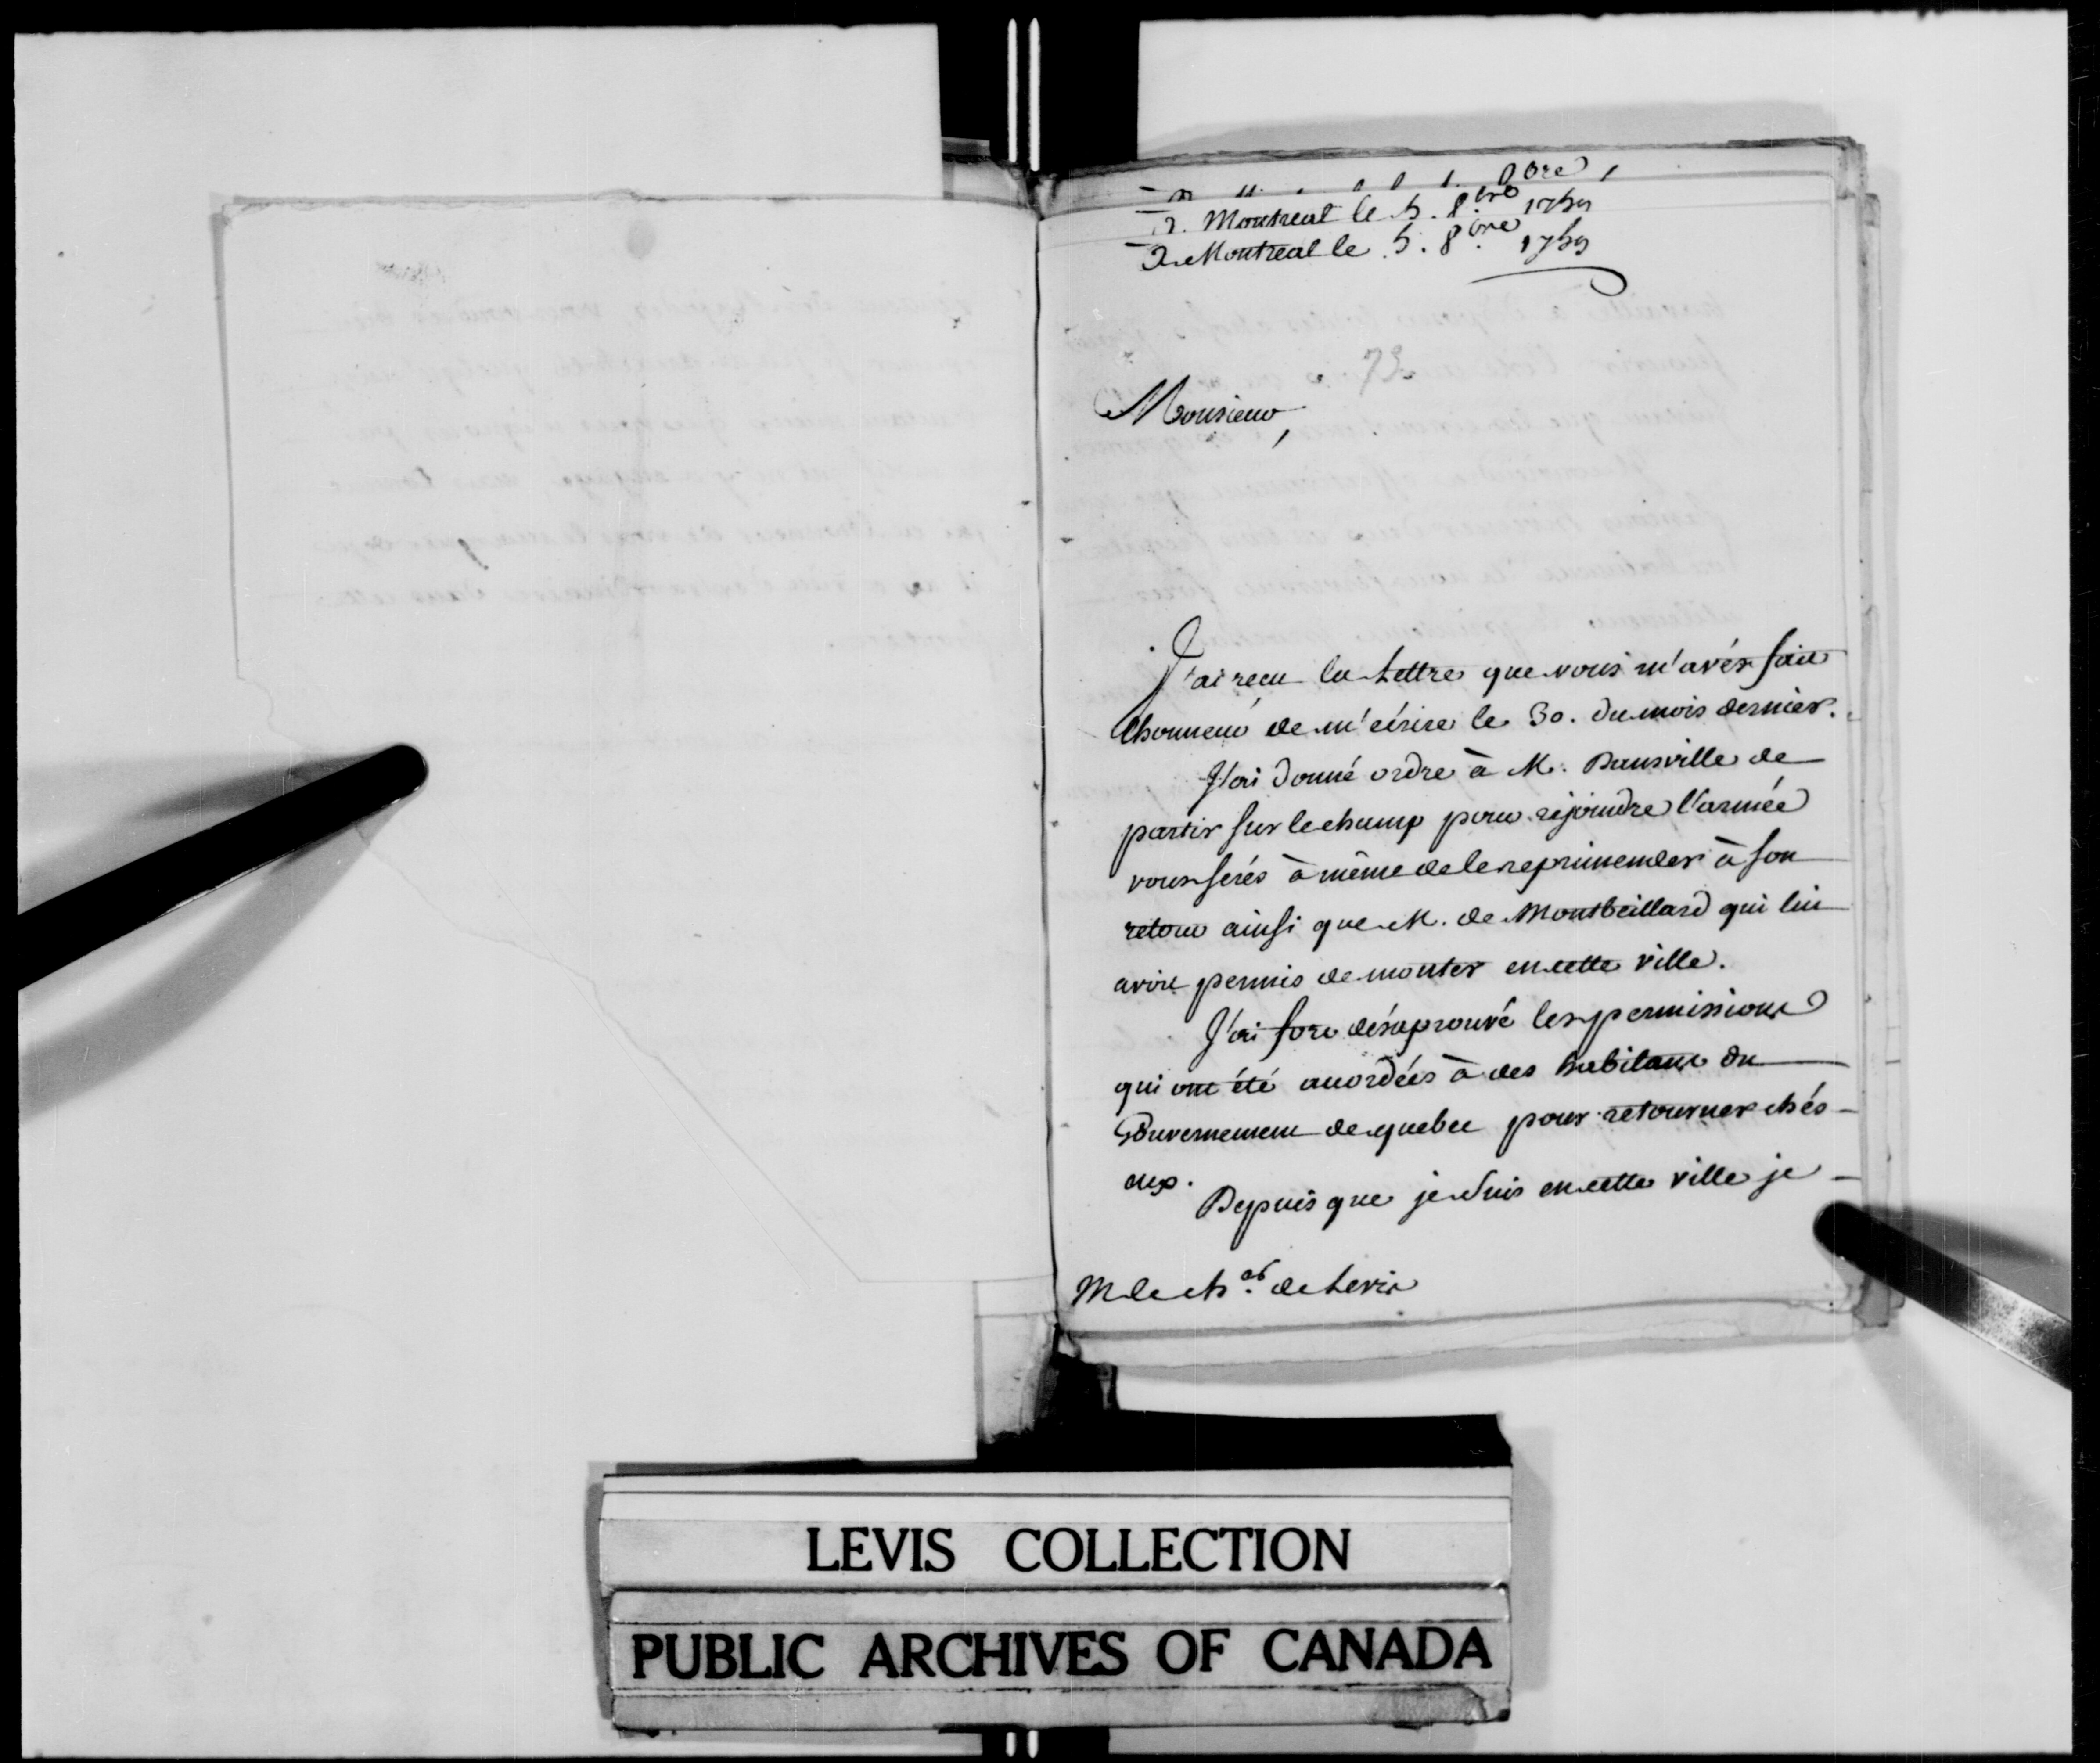 A Montreal le 5. 8.bre 1759
A Montreal le 5. 8.bre 1759
73.
Monsieur,
J'ai recu la Lettre que vous m'avés fait
l'honneur de m'ecrire le 30. du mois dernier.
J'ai donné ordre à M. Dausville de
partir sur le champ pour rejoindre l'armée
vous serés à même de le reprimender à son
retour ainsi que M. de Montbeillard qui lui
avoit permis de monter en cette ville.
J'ai fort désaprouvé les permissions
qui ont été accordées à des habitans du
Gouvernement de quebec pour retourner chés
eux.
Depuis que je suis en cette ville je
M le ch.er de Levis
LEVIS COLLECTION
PUBLIC ARCHIVES OF CANADA